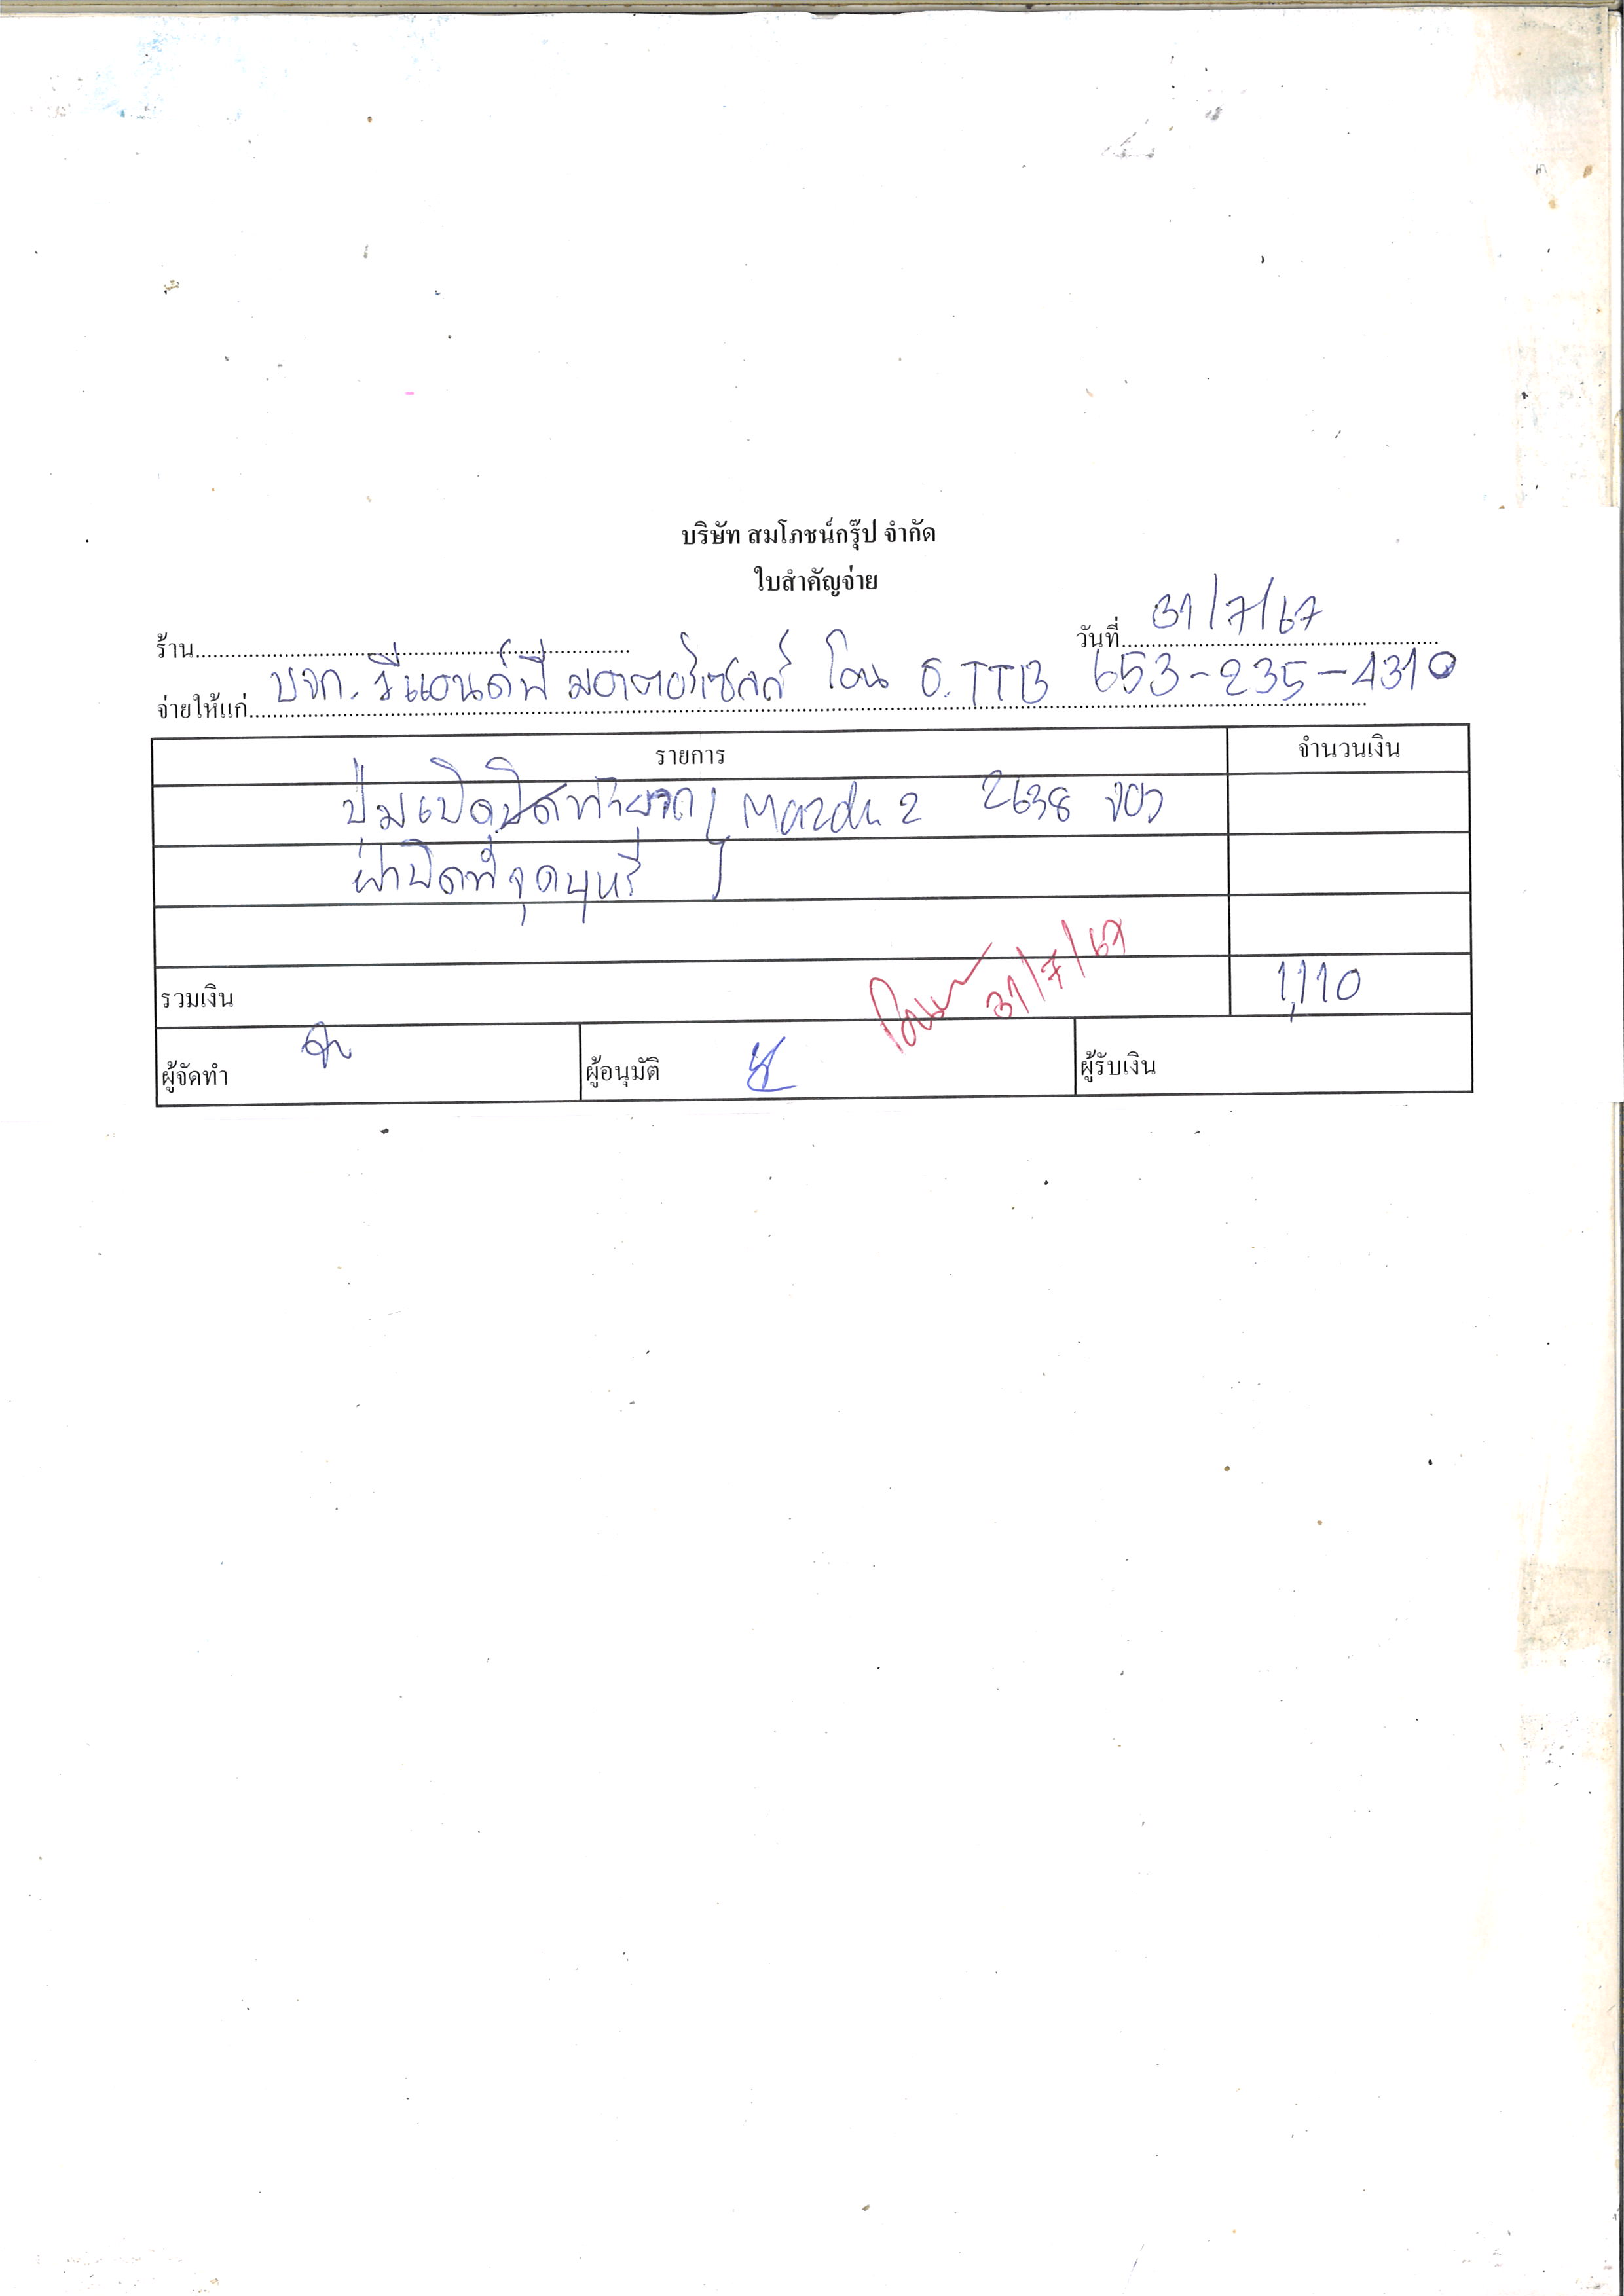 บริษัท สมโภชน์กรุ๊ป จำกัด
ใบสำคัญจ่าย
ร้าน
วันที่ 31/7/67
จ่ายให้แก่ บจก. วีแอนด์พี มอเตอร์เซลส์ โอน ธ.TTB 653-235-4310
รายการ จำนวนเงิน
ปุ่มเปิดปิดท้ายรถ Mazda 2 2638
ฝาปิดที่จุดบุหรี่
รวมเงิน 1,110
โอนแล้ว 31/7/67
ผู้จัดทำ ผู้อนุมัติ ผู้รับเงิน